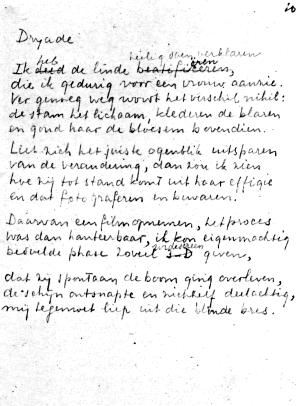 10
Dryade
heb heilig doen verklaren
Ik deed de linde beatificeren, eren
die ik gedurig voor een vrouw aanzie.
Ver genoeg weg wordt het verschil nihil:
de stam het lichaam, klederen de blaren
en goud haar de bloesem bovendien.
Liet zich het juiste ogenblik uitsparen
van de verandering, dan zou ik zien
hoe zij tot stand komt uit haar effigie
en dat fotograferen en bewaren.
Daarvan een film opnemen, het proces
was dan hanteerbaar, ik kon eigenmachtig
kinderlaren
bedoelde phase zoveel 3-D geven,
dat zij spontaan de boom ging overleven,
de schijn ontsnapte en zichzelf deelachtig,
mij tegemoet liep uit die blinde bres.